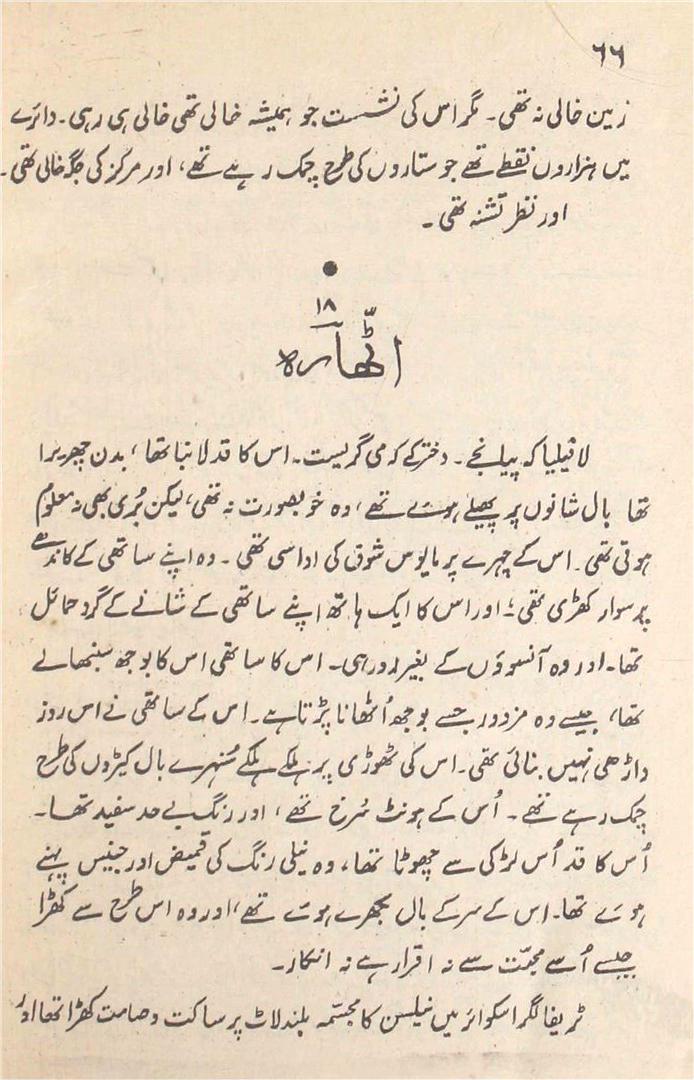 ۶۶
زمین خالی نہ تھی۔ مگر اس کی نشست جو ہمیشہ خالی تھی خالی ہی رہی۔ دائرے
میں ہزاروں نقطے تھے جو ستاروں کی طرح چمک رہے تھے، اور مرکز کی جگہ خالی تھی۔
اور نظر تشنہ تھی۔
۱۸
اٹھارہ
لافیلیا کہ پیانجے۔ دخترکے کہ می گریست۔ اس کا قد لانبا تھا، بدن چھریرا
تھا بال شانوں پر پھیلے ہوئے تھے، وہ خوبصورت نہ تھی، لیکن بُری بھی نہ معلوم
ہوتی تھی۔ اس کے چہرے پر مایوس شوق کی اداسی تھی۔ وہ اپنے ساتھی کے کاندھے
پر سوار کھڑی تھی؛ اور اس کا ایک ہاتھ اپنے ساتھی کے شانے کے گرد حمائل
تھا۔ اور وہ آنسوؤں کے بغیر رو رہی۔ اس کا ساتھی اس کا بوجھ سنبھالے
تھا، جیسے وہ مزدور جسے بوجھ اُٹھانا پڑتا ہے۔ اس کے ساتھی نے اس روز
داڑھی نہیں بنائی تھی۔ اس کی ٹھوڑی پر ہلکے ہلکے سُنہرے بال کیڑوں کی طرح
چمک رہے تھے۔ اُس کے ہونٹ سُرخ تھے، اور رنگ بے حد سفید تھا۔
اُس کا قد اُس لڑکی سے چھوٹا تھا، وہ نیلی رنگ کی قمیض اور جینیں پہنے
ہوئے تھا۔ اس کے سر کے بال بکھرے ہوئے تھے، اور وہ اس طرح سے کھڑا
جیسے اُسے محبّت سے نہ اقرار ہے نہ انکار۔
ٹریفالگر اسکوائر میں نیلسن کا مجسّمہ بلند لاٹ پر ساکت و صامت کھڑا تھا اور